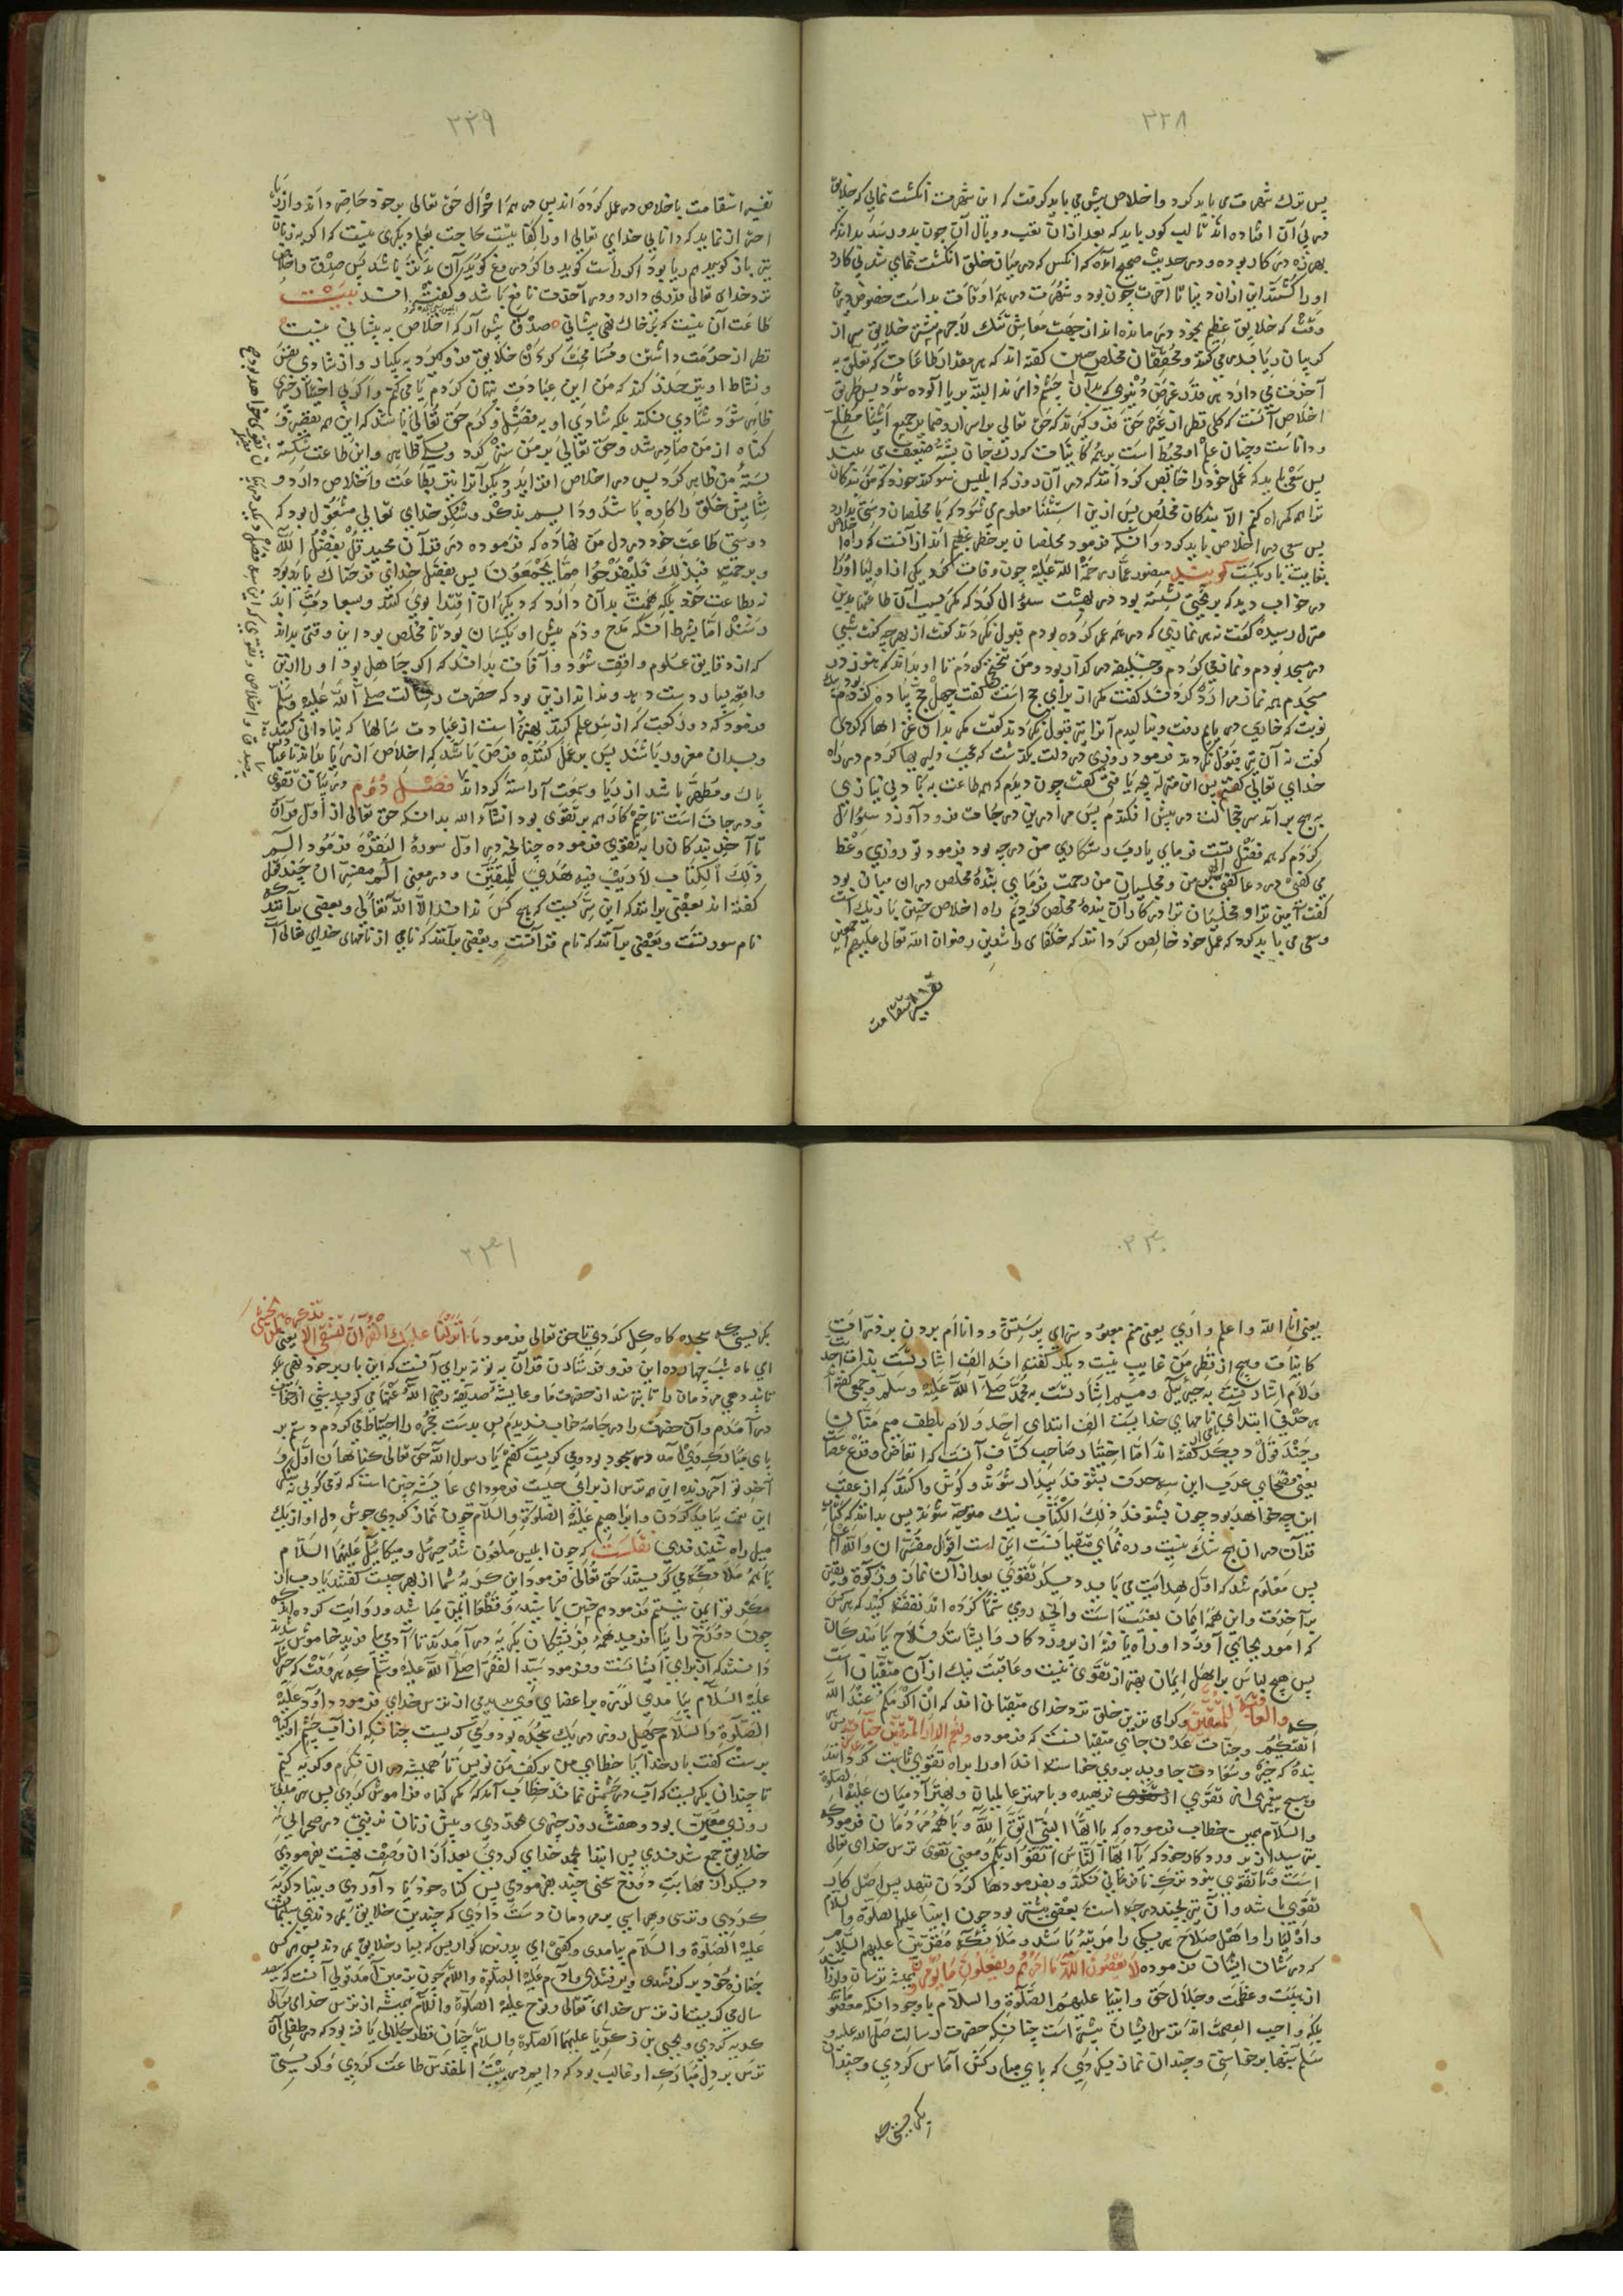 ۳۲۸
پس ترك شهرت می باید کرد و اخلاص پیش می باید گرفت که این شهرت انگشت نمایی که خلایق
در پی آن افتاده اند طالب کور باید که بعد از آن تعب و وبال آن چون بدو رسد بداند که
بهرزه در کار بوده و در حدیث صحیح آمده که انکس که در میان خلق انگشت نمای شد بی کارد
او را کشتند این از ان دنیا تا آخرت چون بود و شهرت در همه اوقات بد است خصوص درین
وقت که خلایق عظیم بخود در مانده اند از جهت معاش تنك لاجرم بیشتر خلایق سر از
کریبان ریا بدر می کنند و محققان مخلص چنین کفته اند که هر مقدار طاعات که تعلق به
آخرت می دارد هر قدر غرض دنیوی که بدان چشم دارند البته بریا آلوده شود پس طریق
اخلاص آنست که کلی نظر از غیر حق فرو گیرند که حق تعالی بر اسرار و ضمایر جمیع اشیا مطلع
و داناست و چنان علم او محیط است بر همه کاینات که رك جان پشه ضعیف می بیند
پس سعی باید که عمل خود را خالص کردانند که در آن روز که ابلیس سوکند خورد که من بندکان
ترا همه کمراه کنم الا بندکان مخلص پس ازین استثنا معلوم می شود که با مخلصان دستی ندارد
پس سعی در اخلاص باید کرد و انکه فرمود مخلصان بر خطر عظیم اند از آنست که راه اخلاص
بغایت باریکست گویند منصور عمار رحمة الله علیه چون وفات کرد یکی از اولیا او را
در خواب دید که بر تختی نشسته بود در بهشت سؤال کرد که مکر بسبب آن طاعتها بدین
منزل رسیده کفت نه هر نمازی که در همه عمر کرده بودم قبول نکردند کفت از بهر چه کفت شبی
در مسجد بودم و نماز می کردم و خلیفه در کذار بود و من تنحنحی کردم تا او بداند که هنوز در
مسجدم همه نماز مرا رد کردند کفت مکر از برای حج است کفت چهل حج پیاده کرده بودم
نوبت که خاری در پایم رفت و بنالیدم آنرا نیز قبول نکردند کفت مکر بدان غزاها که کردی
کفت نه آن نیز قبول نکردند فرمود روزی در دلت بگذشت که عجب دلیریها کردم در راه
خدای تعالی کفتم پس این منزله بچه یافتی کفت چون دیدم که همه طاعت به بادبی نیازی
بر هیچ برآمد سر خجالت در پیش افکندم پس مرا درین درجات فرود آورد سؤال
کردم که همه فضل تست فرمای یا رب رستکاری من در چه بود فرمود تو روزی وعظ
می کفتی در دعا کفتی الهی بر من و مجلسیان من رحمت فرمای بندهٔ مخلص در ان میان بود
کفت آمین ترا و مجلسیان ترا در کار آن بندهٔ مخلص کردیم راه اخلاص چنین باریك است
و سعی می باید کرد که عمل خود خالص کردانند که خلفای راشدین رضوان الله تعالی علیهم اجمعین
تفسیر استقامت
۳۲۹
تفسیر استقامت باخلاص در عمل کرده اند پس در همه احوال حق تعالی بر خود حاضر داند و از ریا
احتراز نماید که دانایی خدای تعالی او را کفایتست حاجت بعلم دیکری نیست که اکر به زبان
نیز باز کویی هم ریا بود اکر راست کوید و اکر دروغ کوید آن بدتر باشد پس صدق و اخلاص
نزد خدای تعالی قدری دارد و در آخرت نافع باشد و کفته اند بیت
طاعت آن نیست که بر خاك نهی پیشانی ٥ صدق پیش آر که اخلاص به پیشانی نیست
نظر از حرمت داشتن و مسامحت کردن خلایق فرو کیرد به یکبار و از شادی نفس
و نشاط او نیز حذر کند که من این عبادت پنهان کردم یا می کنم و اکر بی اختیار خیری
ظاهر شود شادی نکند بلکه شادی او به فضل و کرم حق تعالی باشد که این همه تقصیر و
کناه از من صادر شد و حق تعالی بر من ستر کرد و بکسی ظاهر و این طاعت شکسته
بستهٔ من ظاهر کرد پس در اخلاص افزاید دیکر آنرا نیز بطاعت و اخلاص دارد و
ستایش خلق را کاره باشد و دایم بذکر و شکر خدای تعالی مشغول بود که
دوستی طاعت خود در دل من نهاده که فرموده در قرآن مجید قل بفضل الله
وبرحمته فبذلك فلیفرحوا هو خیر مما یجمعون پس بفضل خدای فرحناك باید بود
نه بطاعت خود بلکه همت بدان دارد که دیکران اقتدا بوی کنند و بسعادت ابد
رسند اما بشرط انکه مدح و ذم پیش او یکسان بود تا مخلص بود این وقتی بداند
که از دقایق علوم واقف شود و آفات بداند که اکر جاهل بود او را ازین
واقعه بسیار دست دهد و نداند ازین بود که حضرت رسالت صلی الله علیه وسلم
فرمود که دو رکعت که از سر علم کنند بهتر است از عبادت سالها که بنادانی کنند
و بدان مغرور باشند پس بر عمل کننده فرض باشد که اخلاص از ریا بداند تا عملش
پاك و مطهر باشد از ریا و سمعت آراسته کرداند فصل دوم در بیان تقوی
و درجات است تا ختم کار همه بر تقوی بود انشاء الله بدانکه حق تعالی از اول قرآن
تا آخر بندکان را به تقوی فرموده چنانچه در اول سورهٔ البقره فرمود الم
ذلك الکتاب لا ریب فیه هدی للمتقین و در معنی الم مفسران چند قول
کفته اند بعضی برانند که این سریست که هیچ کس نداند الا الله تعالی و بعضی برآنند که
نام سورتست و بعضی برآنند که نام قرآنست و بعضی برآنند که نامی از نامهای خدای تعالی است
۲۳۰
یعنی انا الله و اعلم و اری یعنی منم معبود سزای پرستش و دانا ام بردن بر ذرات
کاینات و هیچ از نظر من غایب نیست و دیکر کفته اند الف اشارتست بذات احد
و لام اشارتست به جبرئیل و میم اشارتست به محمد صلی الله علیه وسلم و جمعی کفته اند
هر حرفی ابتدای نامهای خداست الف ابتدای احد و لام بلطف میم منان
و چند قول دیکر کفته اند اما اختیار صاحب کشاف آنست که
یعنی فصحای عرب این سه حرف بشنوند بیدار شوند و کوش واکنند که از عقب
این چه خواهد بود چون بشنوند ذلك الکتاب نیك متوجه شوند پس بدانند که کتاب
قرآن در ان هیچ شك نیست و ره نمای متقیانست این است اقوال مفسران والله اعلم
پس معلوم شد که اول هدایت می باید دیکر تقوی بعد از آن نماز و زکوة و یقین
بر آخرت و این همه ایمان بغیب است و انچه روزی شما کرده اند نفقه کنید که هر کس
که امور بجای آورد او راه یافته از پروردکار و ایشانند فلاح یابندکان
پس هیچ لباس بر اهل ایمان بهتر از تقوی نیست و عاقبت نیك از آن متقیان است
که والعاقبة للمتقین و کرامی ترین خلق نزد خدای متقیان اند که ان اکرمکم عند الله
اتقیکم و جنات عدن جای متقیانست که فرموده ولنعم دار المتقین جنات عدن پس هر
بندهٔ که خیر و سعادت جاوید بر وی خواسته اند او را براه تقوی ثابت کردانند
و هیچ پیغمبری از تقوی نرهیده و با مهتر عالمیان و بهتر آدمیان علیه الصلوة
والسلام همین خطاب فرموده که یا ایها النبی اتق الله و با همه مردمان فرموده که
بترسید از پروردکار خود که یا ایها الناس اتقوا ربکم و معنی تقوی ترس خدای تعالی
است و تا تقوی نبود ترك نافرمانی نکند و بفرمودها کردن ننهد پس اصل کار
تقوی باشد و آن نیز بچند درجه است بعضی بیشتر بود چون انبیا علیهم الصلوة والسلام
و اولیا را و اهل صلاح هر یکی را مرتبهٔ باشد و ملائکه مقربین علیهم السلام
که در شان ایشان فرموده لا یعصون الله ما امرهم ویفعلون ما یؤمرون همیشه ترسان و لرزانند
از هیبت و عظمت و جلال حق و انبیا علیهم الصلوة والسلام با وجود انکه معصوم
بلکه واجب العصمت اند ترس ایشان بیشتر است چنانکه حضرت رسالت صلی الله علیه و
سلم شبها بر خواستی و چندان نماز بکردی که پای مبارکش آماس کردی و چندان
بگریستی که
۲۳۱
بکریستی که سجده کاه کل کردی تا حق تعالی فرمود ما انزلنا علیك القرآن لتشقی الا تذکرة لمن یخشی یعنی
ای ماه شب چهارده این فرو فرستادن قرآن به تو نه برای آنست که این بار بر خود نهی که
و عایشه صدیقه رضی الله عنها می کوید شبی از خواب
در آمدم و آن حضرت را در جامه خواب ندیدم پس بدست حجره را احتیاط می کردم دستم بر
پای مبارك وی آمد در سجود بود و می کریست کفتم یا رسول الله حق تعالی کناهان اول و
آخر تو آمرزیده این همه ترس از برای چیست فرمود ای عایشه چنین است که تو می کویی نه شکر
این نعمت بباید کردن و ابراهیم علیه الصلوة والسلام چون نماز کردی جوش دل او از یك
میل راه شنیدندی نقلست که چون ابلیس ملعون شد جبرئیل و میکائیل علیهما السلام
با همه ملائکه می کریستند حق تعالی فرمود این کریهٔ شما از بهر چیست کفتند یا رب از
مکر تو ایمن نیستیم فرمود همچنین باشید و قطعا ایمن مباشید و روایت کرده اند که
چون دوزخ را بیافرید همه فرشتکان بکریه در آمدند تا آدمی بیافرید خاموش شدند
دانستند که از برای ایشانست و فرمود سید الفقرا صلی الله علیه وسلم که هر وقت که جبرئیل
علیه السلام بیامدی لرزه بر اعضای وی بدیدمی از ترس خدای فرمود داود علیه
الصلوة والسلام چهل روز در یك سجده بود و می کریست چنانکه از آب چشم او کیاه
برست کفت بار خدایا خطای من بر کف من نویس تا همیشه در ان نکرم و کریه کنم
تا چندان بکریست که آب در چشمش نماند خطاب آمد که مکر کناه فراموش کردی پس هر مدتی
روزی معین بود و هفت روز چیزی نخوردی و پیش زنان نرفتی در صحرایی که
خلایق جمع شدندی پس ابتدا بحمد خدای کردی بعد از ان وصف بهشت بفرمودی
دیکر از مهابت دوزخ سخنی چند بفرمودی پس کناه خود یاد آوردی و بنیاد کریه
کردی و ترسی و هراسی بر مردمان دست دادی که چندین خلایق بمردندی سلیمان
علیه الصلوة والسلام بیامدی و کفتی ای پدر بزرکوار بس که بسیار خلایق بمردند پس هر کس
جنازهٔ خود برکرفتندی و برفتندی و آدم علیه الصلوة والسلام چون بزمین آمد قولی آنست که سیصد
سال می کریست از ترس خدای تعالی و نوح علیه الصلوة والسلام همیشه از ترس خدای تعالی
کریه کردی و یحیی بن زکریا علیهما الصلوة والسلام چنان نظر جلالی یافته بود که در طفلی آن
ترس بر دل مبارك او غالب بود که دایم در بیت المقدس طاعت کردی و کریستی